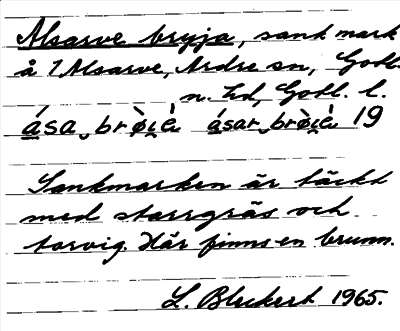 Alsarve bryja, sank mark
å 7 Alsarve, Ardre sn, Gotl.
n. hd, Gotl. l.
ása brò̤ıè ásar brò̤ıè 19
Sankmarken är täckt
med starrgräs och
torvig. Här finns en brunn.
L. Bleckert 1965.